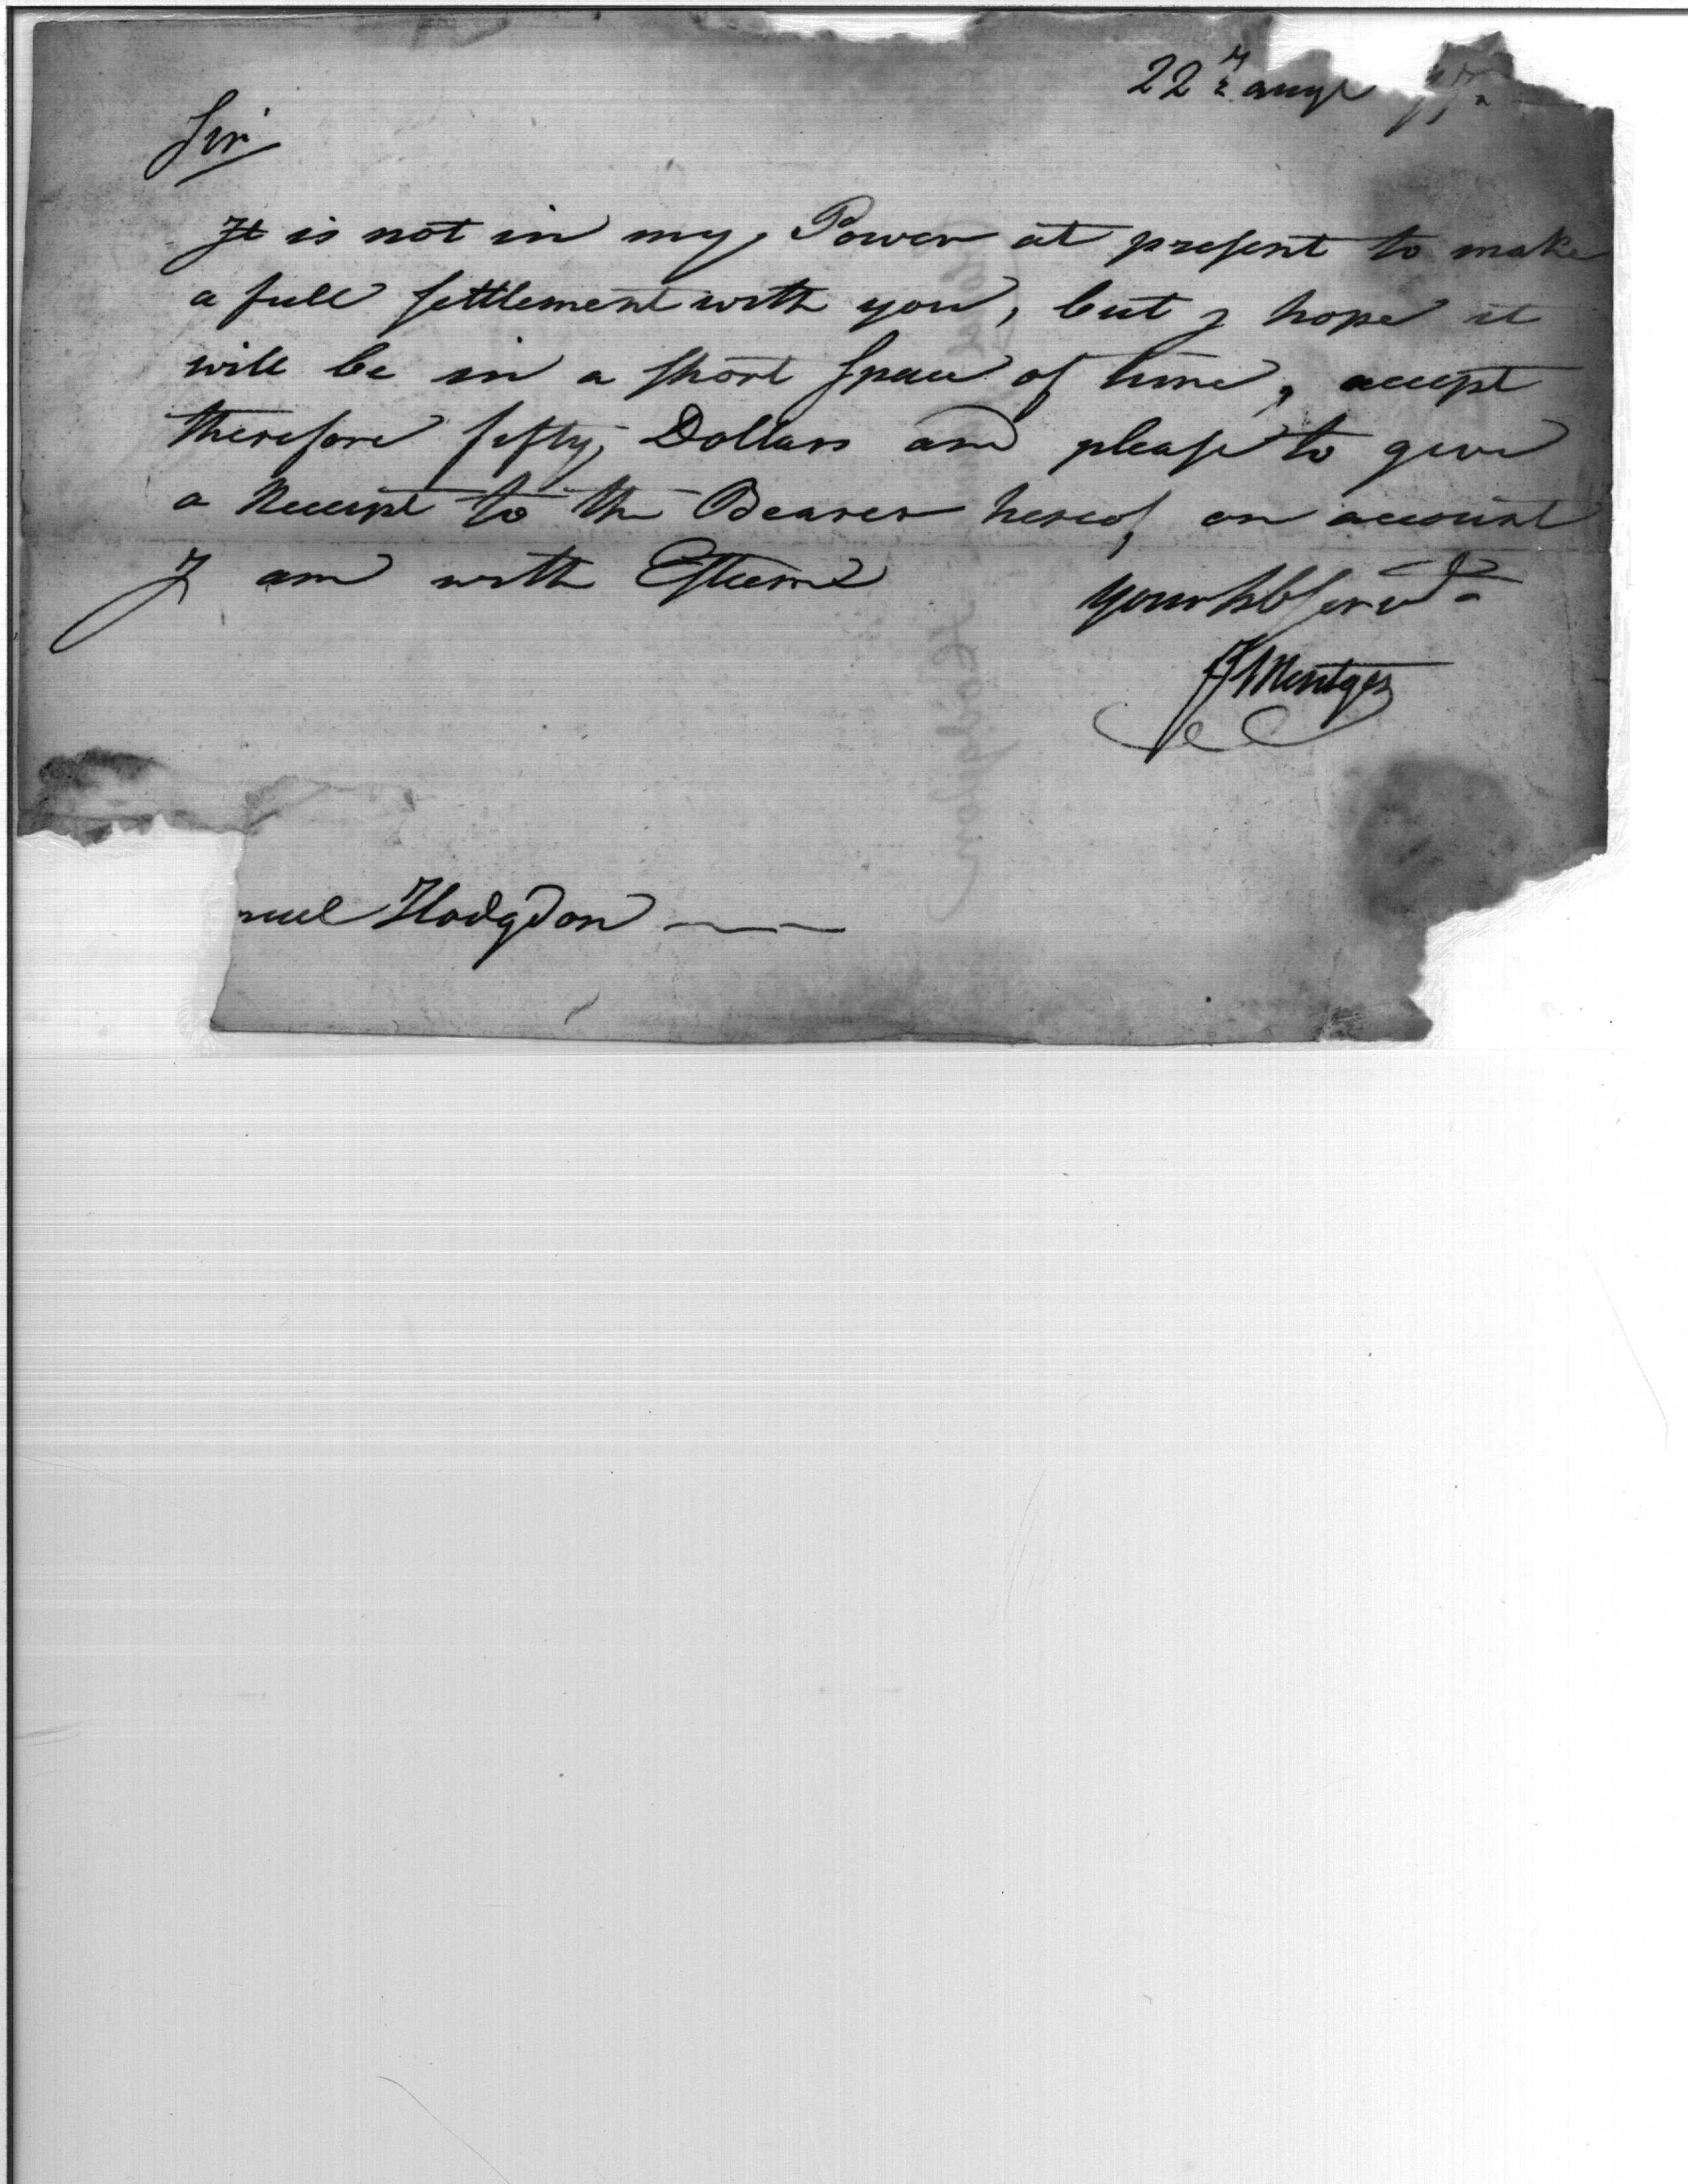 22d augt
Sir
It is not in my Power at present to make
a full settlement with you, but I hope it
will be in a short space of time, accept
therefore fifty Dollars and please to give
a Receipt to the Bearer hereof on account
I am with Esteem
your hbl servt
F Mentges
muel Hodgdon